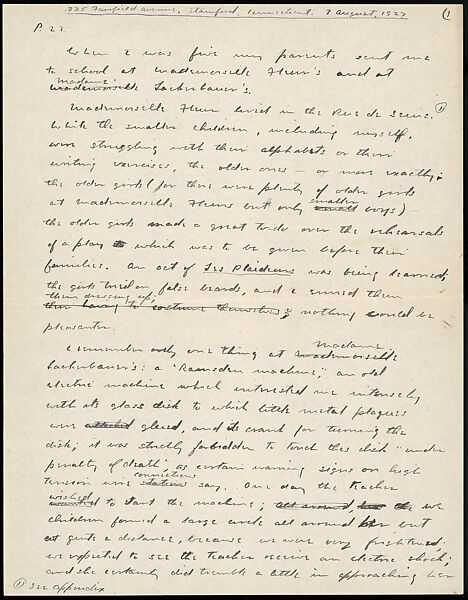 325 Fairfield avenue, Stamford, Connecticut. 7 August, 1927
(1)
P. 22
When I was five my parents sent me
to school at Mademoiselle Fleur's and at
Madame
Mademoiselle Lackerbauer's.
Mademoiselle Fleur lived in the Rue de Seine. (1)
While the smaller children, including myself,
were struggling with their alphabets or their
writing exercises, the older ones — or more exactly,
the older girls (for there were plenty of older girls
smaller
at Mademoiselle Fleurs but only small boys)
the older girls made a great todo over the rehearsals
of a play which was to be given before their
families. An act of Les Plaideurs was being rehearsed;
the girls tried on false beards, and I envied them
their dressing up;
their having to costume themselves; nothing could be
pleasanter.
I remember only one thing at Madame
Mademoiselle
Lackerbauer's: a "Ramsden machine," an old
electric machine which interested me intensely
with its glass disk to which little metal plaques
were attached glued, and its crank for turning the
disk; it was strictly forbidden to touch this disk "under
penalty of death", as certain warning signs on high
connections
tension wire stations say. One day the teacher
wished
wanted to start the machine; all around, the we
children formed a large circle all around her but
at quite a distance, because we were very frightened.
we expected to see the teacher receive an electric shock;
and she certainly did tremble a little in approaching her
(1) See appendix